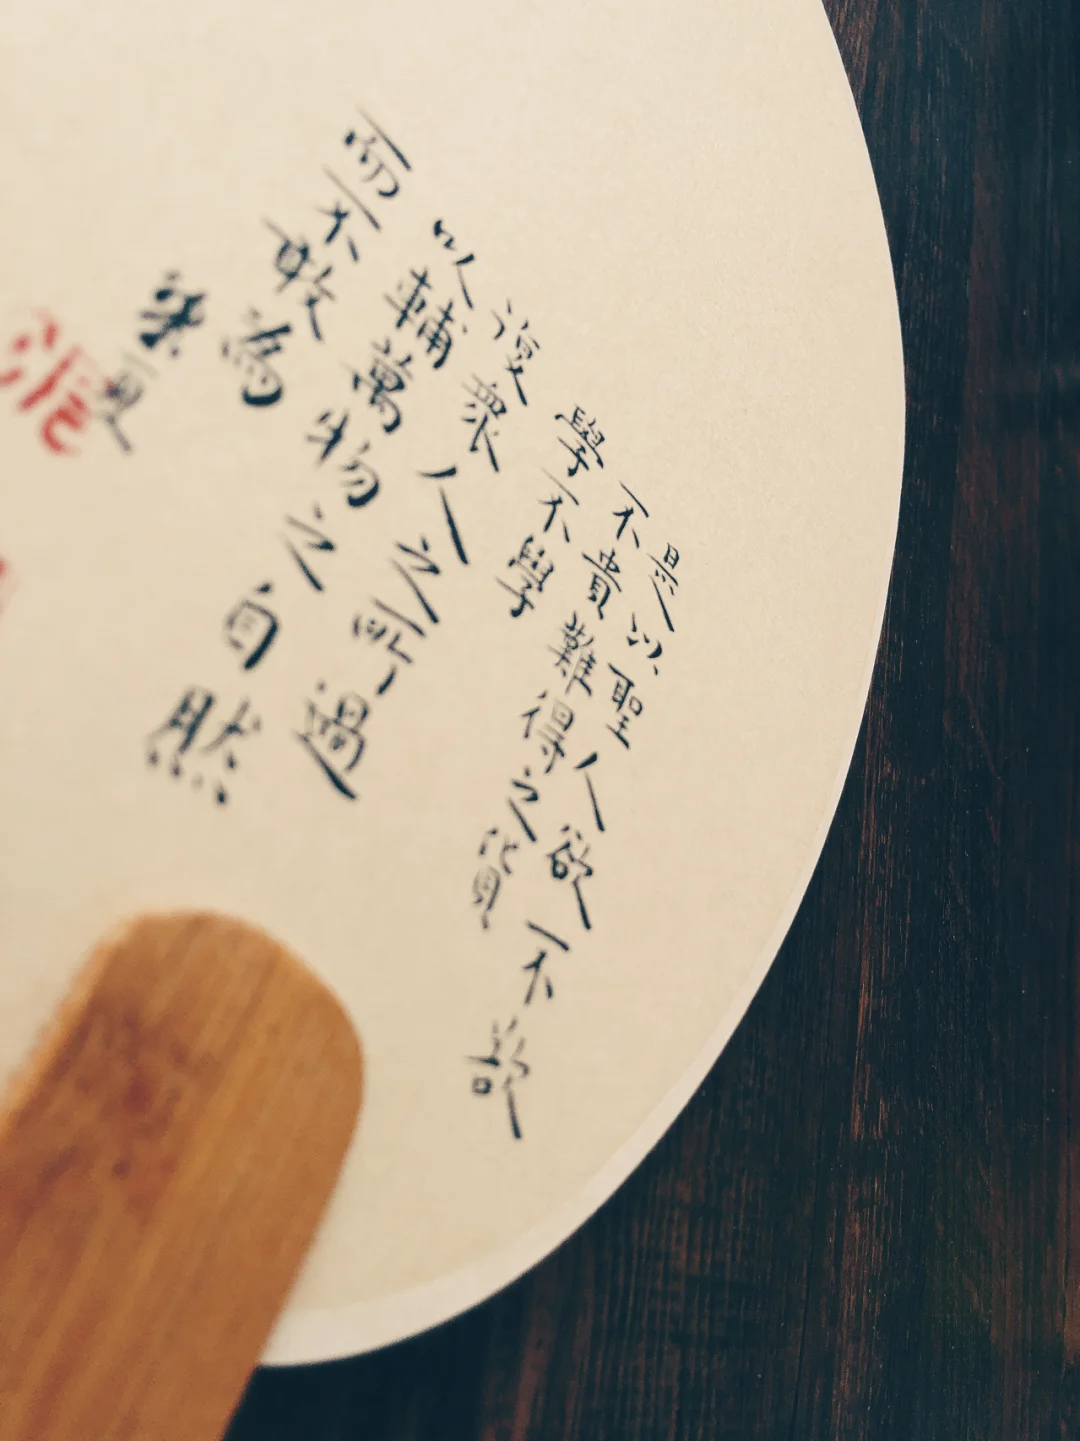 是以聖人欲不欲
不貴難得之貨
學不學
復衆人之所過
以輔萬物之自然
而不敢為